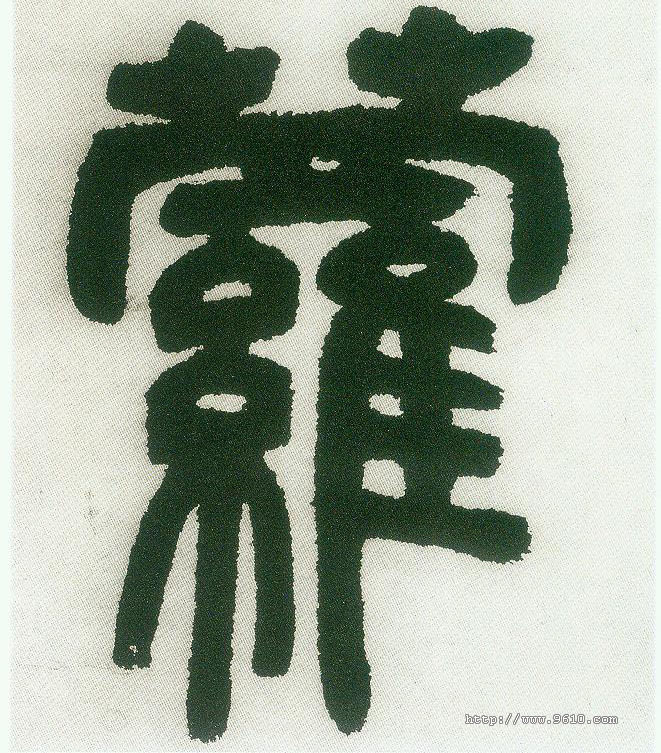 蘿
http://www.9610.com